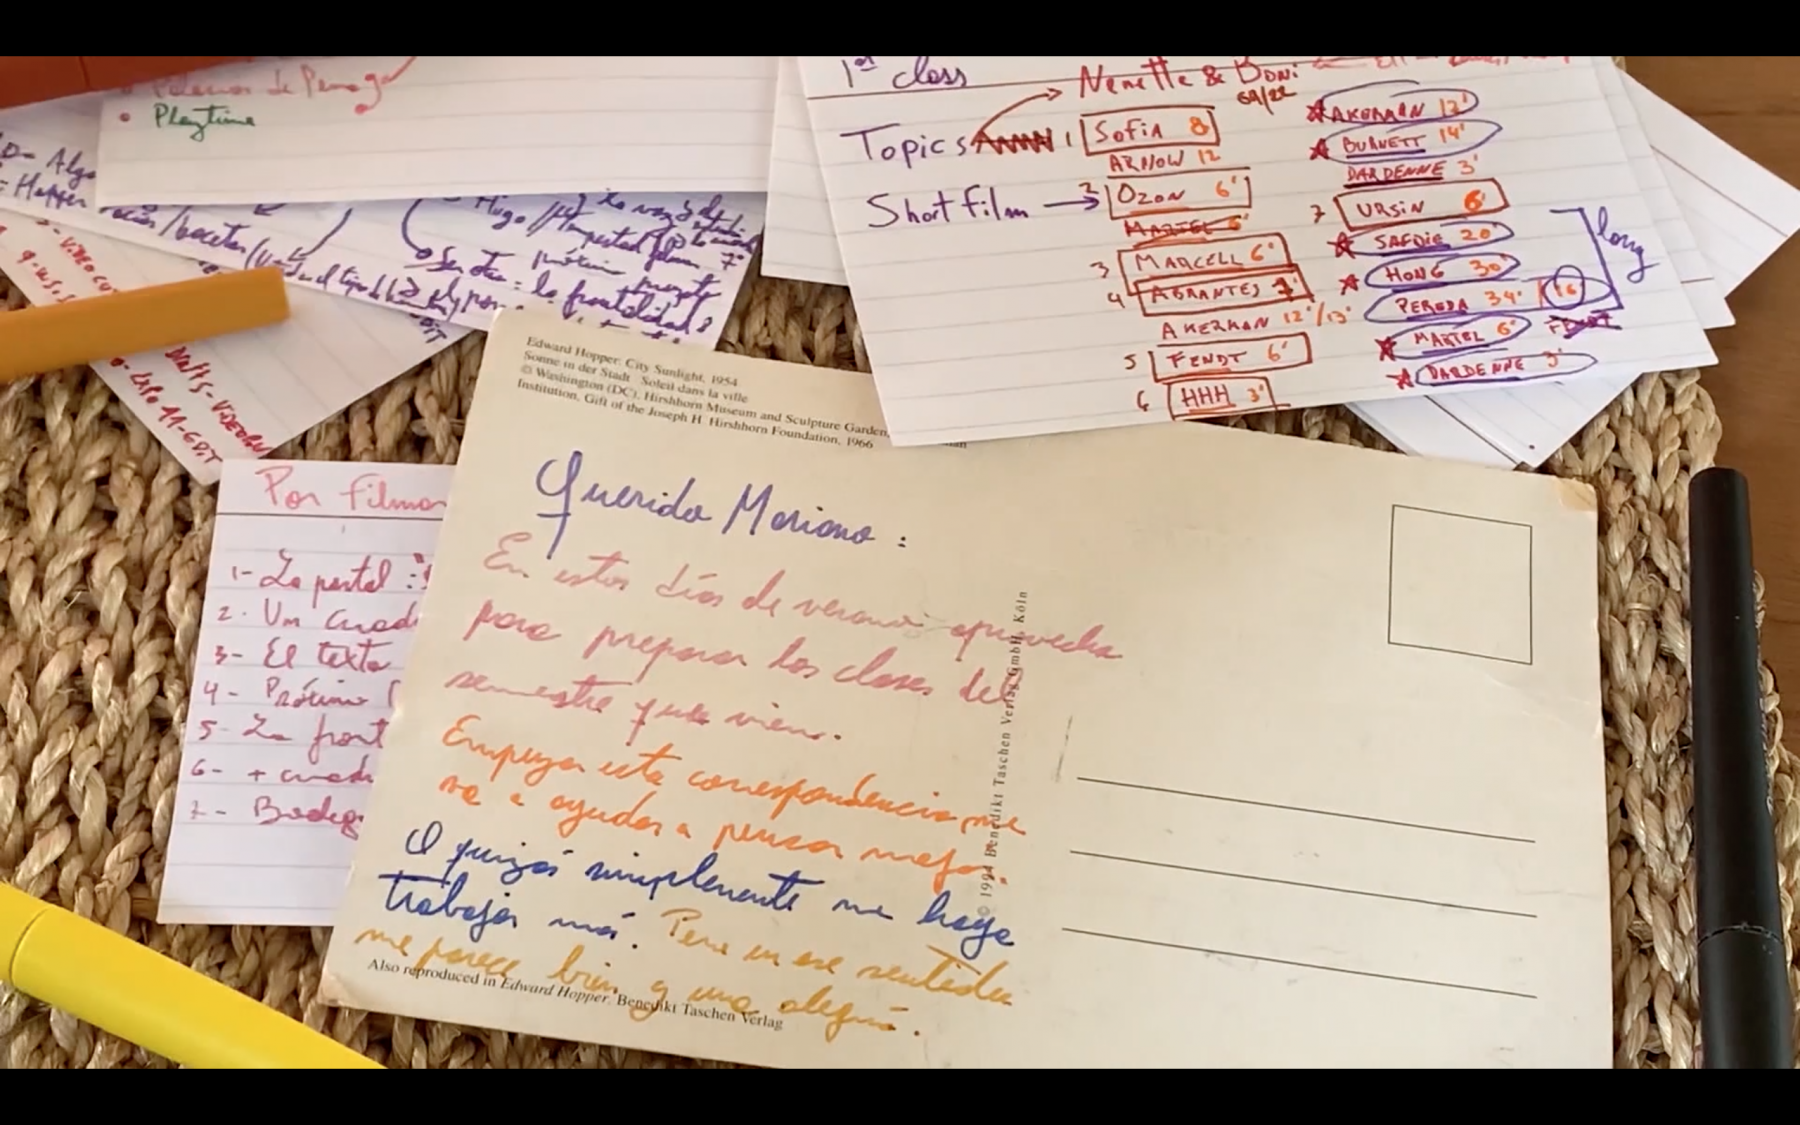 Palomas de
• Playtime
0- Algo
Hopper
Hugo
Sentex: la frontalidad
1st class
Nenette & Boni
69/22
Topics
1 SOFIA 8
ARNOW 12
Short Film → 2 OZON 6'
MARTEL 6'
3 MARCELL 6'
4 ABRANTES 7'
AKERMAN 12'/13'
5 FENDT 6'
6 HHH 3'
AKERMAN 12'
BURNETT 14'
DARDENNE 3'
7 URSIN 6'
SAFDIE 20'
HONG 30'
PEREDA 34' / 16
FENDT
MARTEL 6'
DARDENNE 3'
long
Por filmar
1- La postal :
2. Un cuad
3- El texto
4- Próximo
5- La front
6- + cuad
7- Bodeg
Edward Hopper: City Sunlight, 1954
Sonne in der Stadt · Soleil dans la ville
© Washington (DC), Hirshhorn Museum and Sculpture Garden,
Institution, Gift of the Joseph H. Hirshhorn Foundation, 1966
Querido Mariano :
En estos días de verano aprovecho
para preparar las clases del
semestre que viene.
Empezar esta correspondencia me
va a ayudar a pensar mejor.
O quizás simplemente me haga
trabajar más. Pero en ese sentido
me parece bien y una alegría.
Also reproduced in Edward Hopper. Benedikt Taschen Verlag
© 1994 Benedikt Taschen Verlag GmbH, Köln